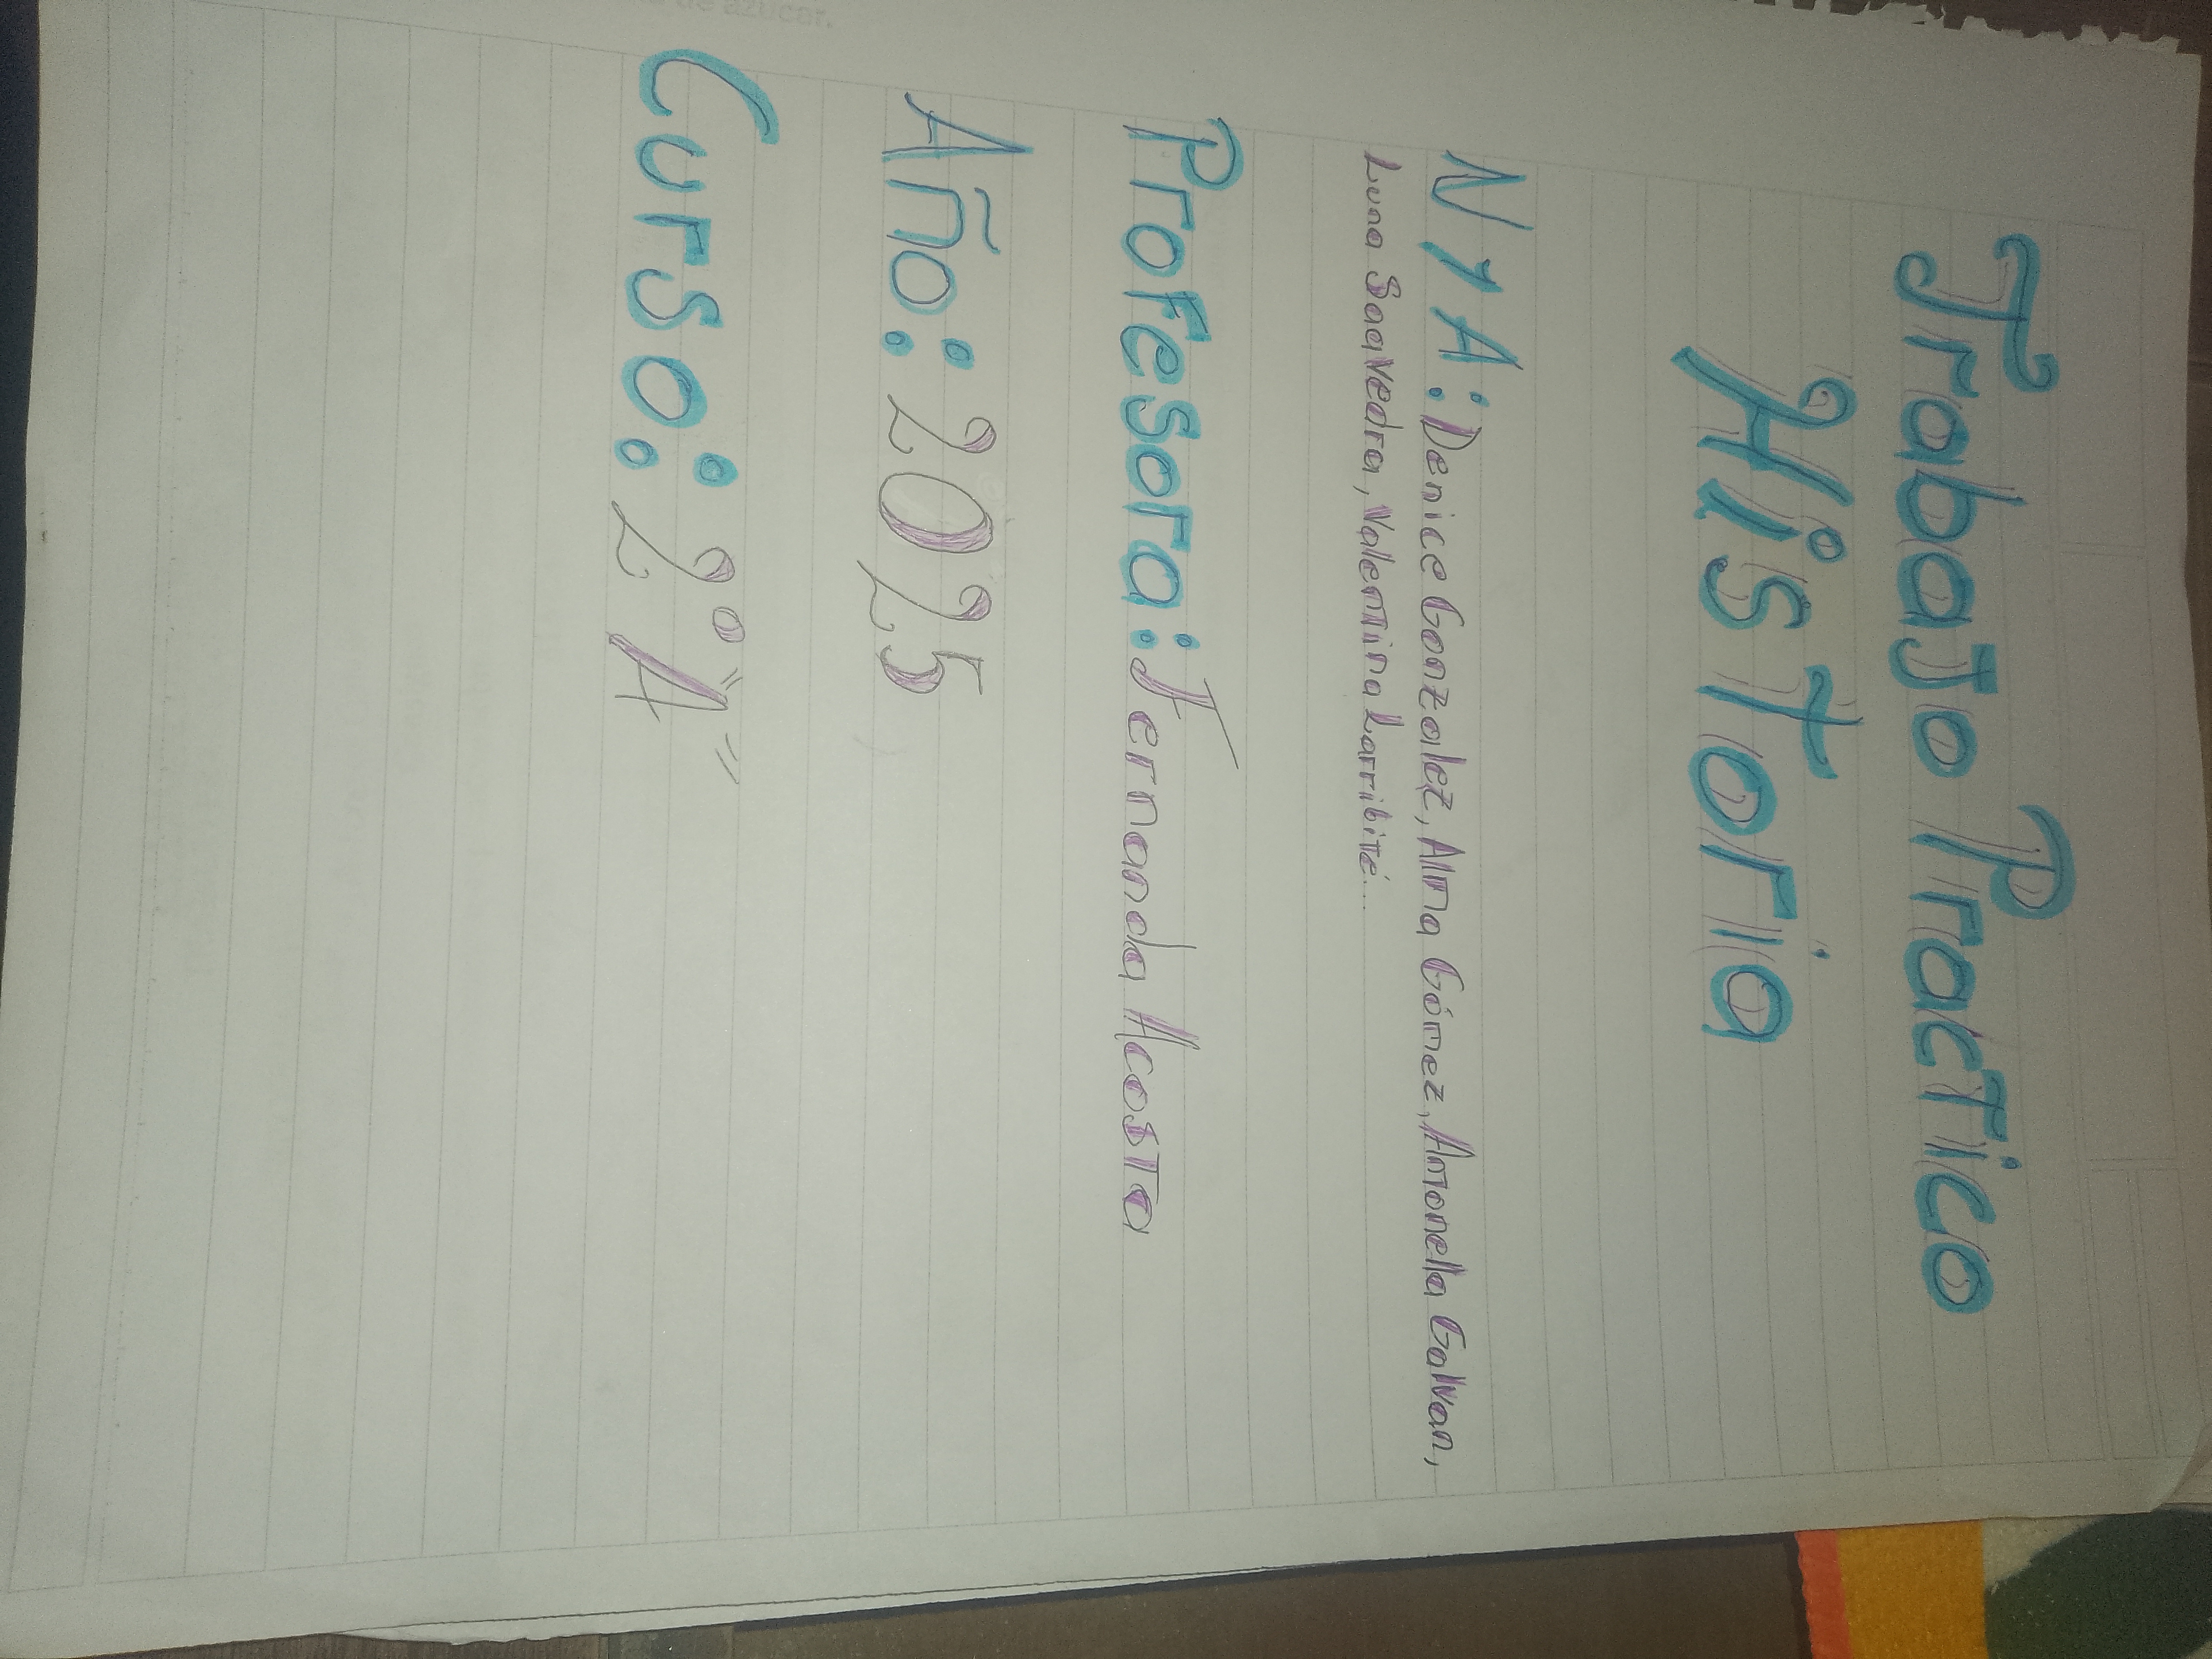 Trabajo Practico
Historia
N Y A: Denice Gonzalez, Alma Gómez, Antonella Galvan,
Luna Saavedra, Valentina Larribité...
Profesora: Fernanda Acosta
Año: 2025
Curso: 2° "A"
de azúcar.